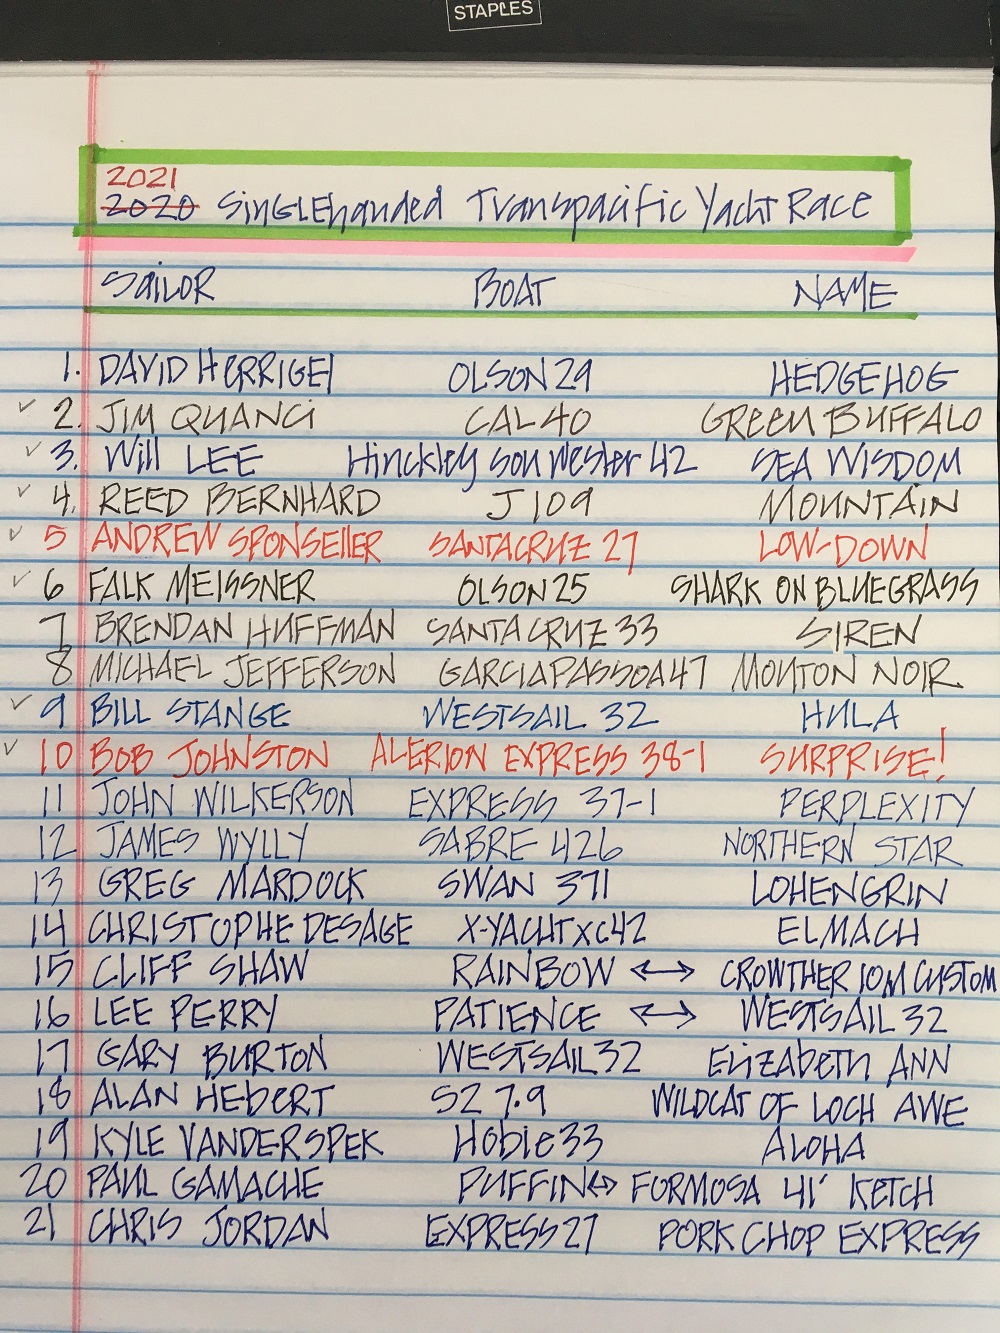 STAPLES
2021
2020 Singlehanded Transpacific Yacht Race
Sailor BOAT NAME
1. DAVID HERRIGEl OLSON 29 HEDGEHOG
✓ 2. JIM QUANCi CAL 40 GREEN BUFFALO
✓ 3. Will LEE Hinckley sou'wester 42 SEA WISDOM
✓ 4. REED BERNHARD J109 MOUNTAIN
✓ 5 ANDREW SPONSEller SANTACRUZ 27 LOW-DOWN
✓ 6 FALK MEISSNER OLSON 25 SHARK ON BLUEGRASS
7 BRENDAN HUFFMAN SANTA CRUZ 33 SIREN
8 MICHAEL JEFFERSON GARCIA PASSOA 47 MOUTON NOIR
✓ 9 BILL STANGE WESTSAIL 32 HULA
✓ 10 BOB JOHNSTON ALERION EXPRESS 38-1 SURPRISE!
11 JOHN WILKERSON EXPRESS 37-1 PERPLEXITY
12 JAMES WYLLY SABRE 426 NORTHERN STAR
13 GREG MARDOCK SWAN 371 LOHENGRIN
14 CHRISTOPHE DESAGE X-YACHT XC42 ELMACH
15 CLIFF SHAW RAINBOW ↔ CROWTHER 10M CUSTOM
16 LEE PERRY PATIENCE ↔ WESTSAIL 32
17 GARY BURTON WESTSAIL 32 Elizabeth ANN
18 ALAN HEbERT S2 7.9 WILDCAT OF LOCH AWE
19 KYLE VANDERSPEK Hobie 33 ALOHA
20 PAUL GAMACHE PUFFIN ↔ FORMOSA 41' KETCH
21 CHRIS JORDAN EXPRESS 27 PORK CHOP EXPRESS